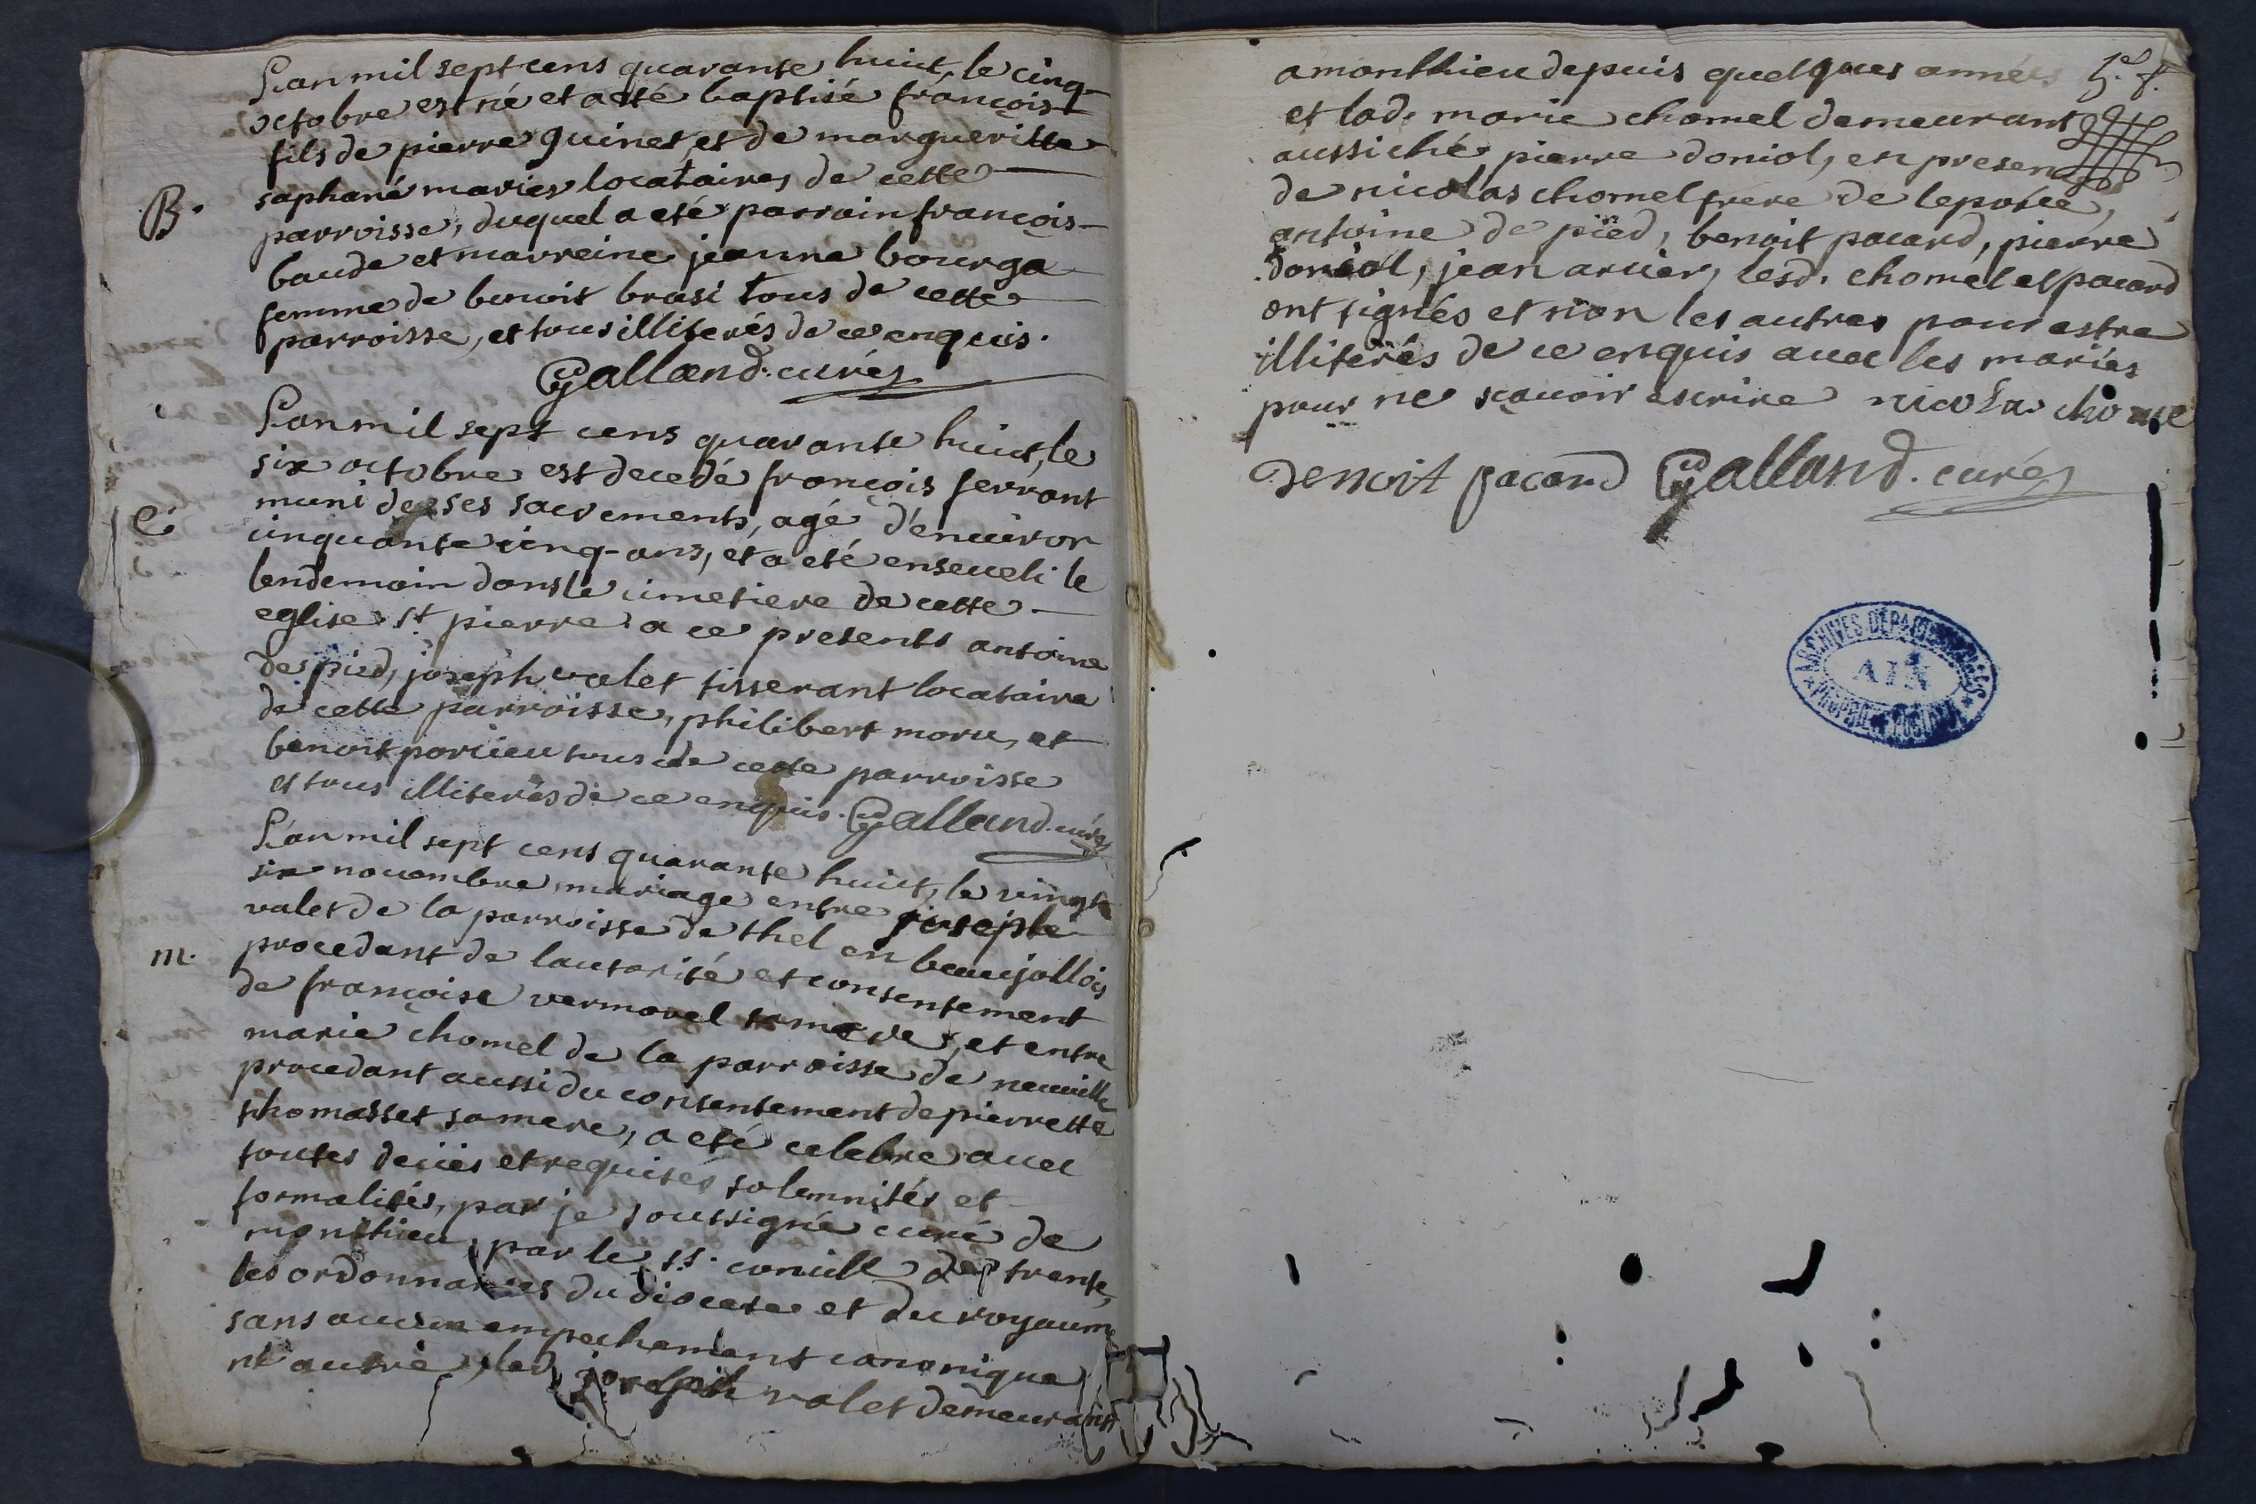 L'an mil sept cens quarante huict, le cinq
octobre est né et a eté baptisé françois
fils de pierre quinet, et de margueritte
saphané mariés locataires de cette
B. parroisse, duquel a eté parrain françois
baude et marreine jeanne bourga
femme de benoit brasi tous de cette
parroisse, et tous illiterés de ce enquis.
Galland. curé
L'an mil sept cens quarante huict, le
six octobre est decedé françois ferrant
muni de ses sacrements, agé d'environ
cinquante cinq-ans, et a eté enseveli le
lendemain dans le cimetiere de cette
eglise st pierre a ce presents antoine
de pied, joseph valet tisserant locataire
de cette parroisse, philibert moru, et
benoit porcieu tous de cette parroisse
et tous illiterés de ce enquis. Galland. curé
L'an mil sept cens quarante huict, le vingt
six novembre mariage entre joseph
valet de la parroisse de thel en beaujollois
m. procedant de lautorité et consentement
de françoise vermorel sa mere, et entre
marie chomel de la parroisse de neuville
procedant aussi du consentement de pierrette
thomasset sa mere, a eté celebre avec
toutes deües et requises solemnités et
formalités, par je soussigné curé de
monthieu, par le s.s. concille de trente,
les ordonnances du diocese et du royaume
sans aucun empechement canonique
ni autre, led. joseph valet demeurant
a monthieu depuis quelques années
et lad. marie chomel demeurant
aussi ché pierre doniol, en presence
de nicolas chomel frere de lepouse,
antoine de pied, benoit pacard, pierre
doniol, jean arcier, lesd. chomel et pacard
ont signés et non les autres pour estre
illiterés de ce enquis avec les mariés
pour ne sçavoir escrire nicolas chomel
benoit pacard Galland. curé
ARCHIVES DÉPARTEMENTALES
AIN